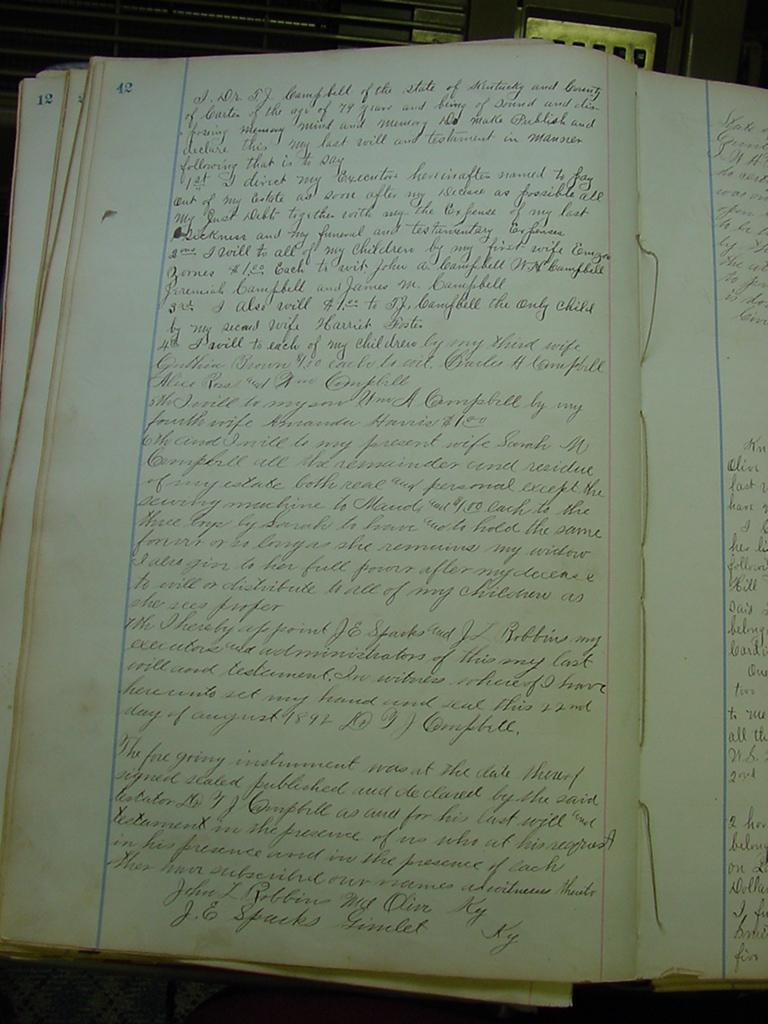 12
42
I. Dr. T.J. Campbell of the state of Kentucky and County
of Carter of the age of 79 years and being of sound and dis
posing memory mind and memory Do make Publish and
declare this my last will and testament in manner
following that is to say
1st I direct my Executors hereinafter named to pay
out of my Estate as soon after my Decease as possible all
my Just Debt together with my the Expense of my last
sickness and my funeral and testamentary Expenses
2nd I will to all of my children by my first wife
Jones $1.00 Each to wit John A. Campbell W.H. Campbell
Jeremiah Campbell and James M. Campbell
3rd I also will $1.00 to T.J. Campbell the only child
by my second wife Harriet Foster
4th I will to each of my children by my third wife
Cynthia Brown $1.00 each to wit. Charles H Campbell
Alice Rose and Wm Campbell
5th I will to my son Wm A Campbell by my
fourth wife Amanda Harris $1.00
6th and I will to my present wife Sarah M
Campbell all the remainder and residue
of my estate both real and personal except the
sewing machine to Maud and $1.00 each to the
three boys by Sarah to have and to hold the same
forever or so long as she remains my widow
I also give to her full power after my decease
to will or distribute to all of my children as
she sees proper
7th I hereby appoint J.E Sparks and J L Robbins my
executors and administrators of this my last
will and testament. In witness whereof I have
hereunto set my hand and seal this 22nd
day of august 1892 Dr T J Campbell.
The fore going instrument was at the date thereof
signed sealed published and declared by the said
testator Dr T J Campbell as and for his last will and
testament in the presence of us who at his request
in his presence and in the presence of each
other have subscribed our names as witnesses thereto
John L Robbins Mt Olive Ky
J. E Sparks Gimlet Ky
State o
last w
have
follow
Hill
said
belong
to me
all th
2nd
belong
on
Dollar
five